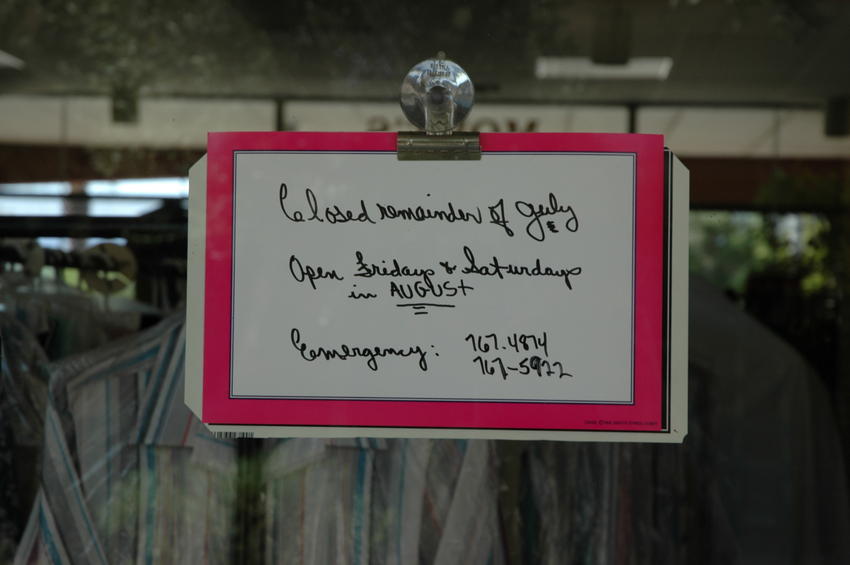 Closed remainder of July
&
Open Fridays & Saturdays
in AUGUST
Emergency: 767.4874
767-5922